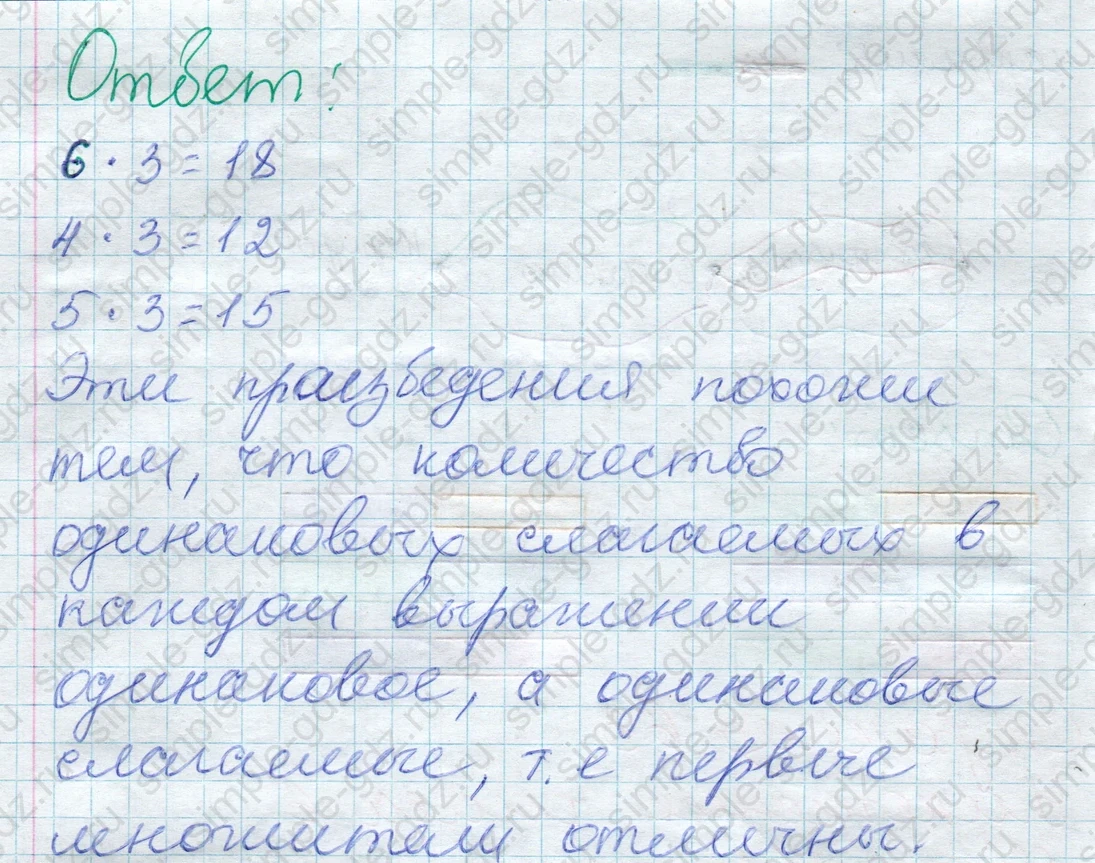 Ответ:
6 · 3 = 18
4 · 3 = 12
5 · 3 = 15
Эти произведения похожи
тем, что количество
одинаковых слагаемых в
каждом выражении
одинаковое, а одинаковые
слагаемые, т.е первые
множители отличны.
simple-gdz.ru